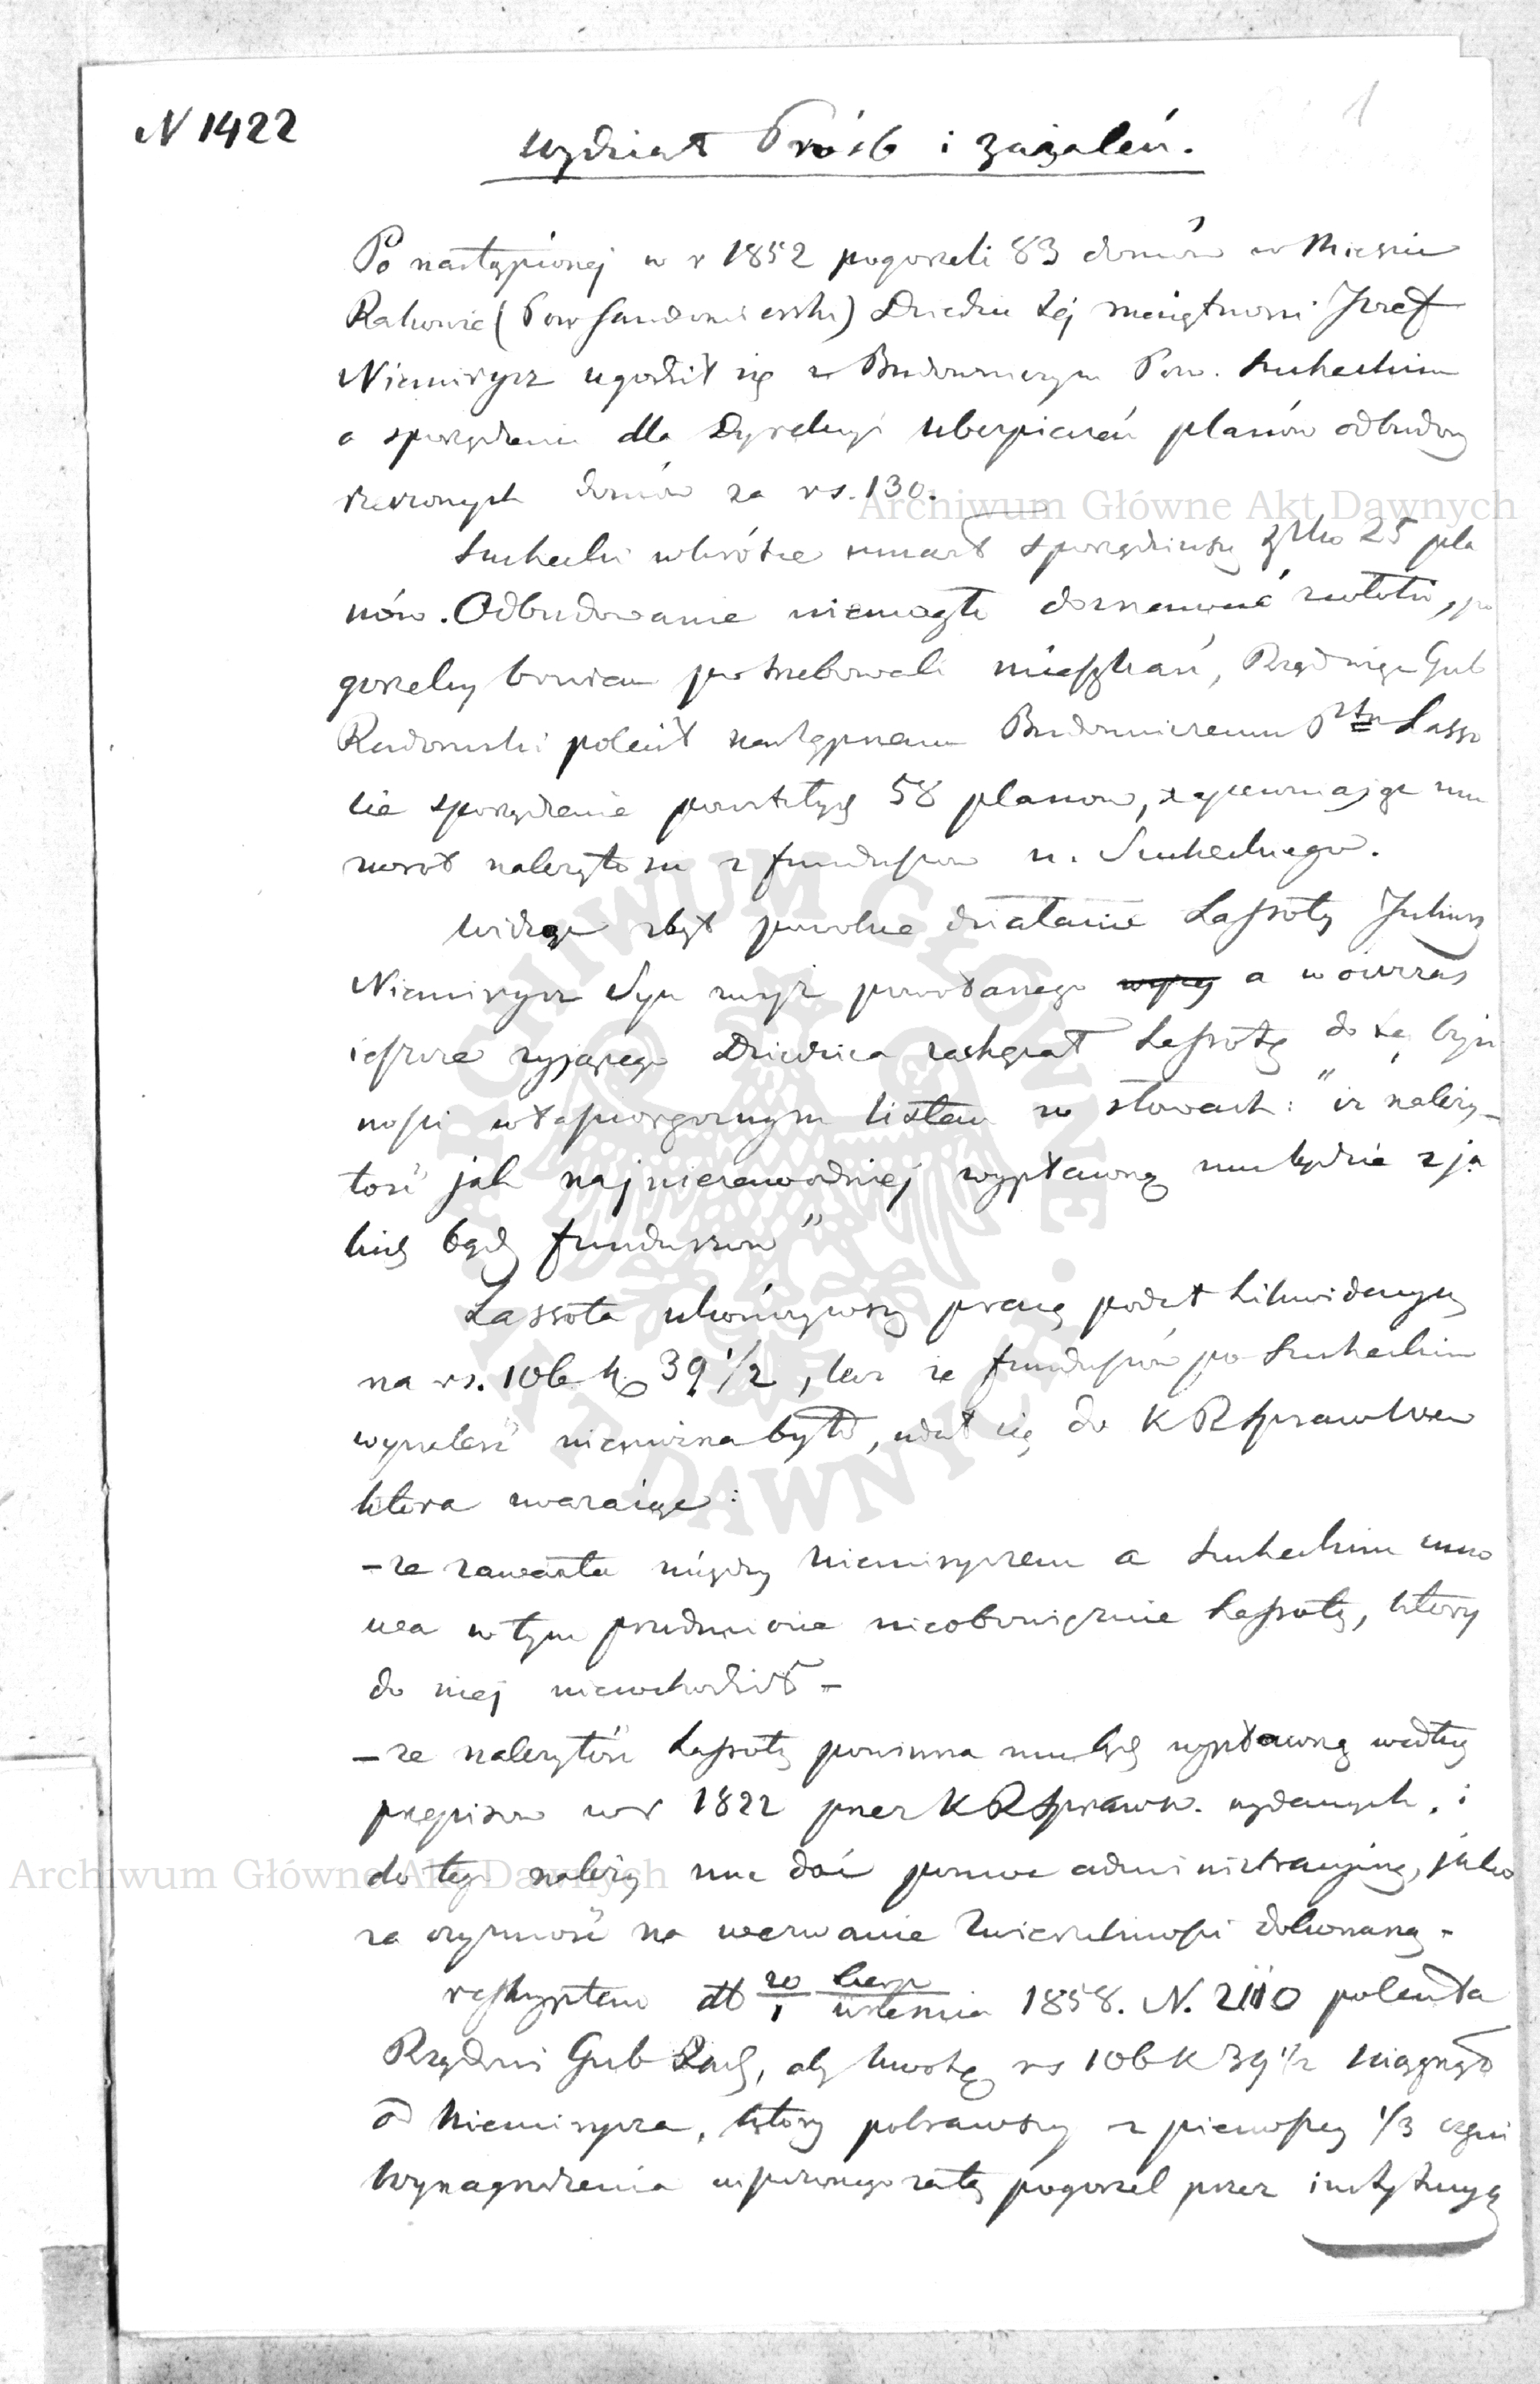 N 1422
1
Wydział Próśb i zażaleń.
Po nastąpionej w r 1852 pogorzeli 83 domów w Mieście
Rakowie (Pow Sandomierski) Dziedzic tej majętności Józef
Niemirycz ugodził się z Budowniczym Pow. Sucheckim
o sporządzenie dla Dyrekcyi ubezpieczeń planów odbudowy
rzeczonych domów za rs. 130.
Archiwum Główne Akt Dawnych
Suchecki wkrótce umarł sporządziwszy tylko 25 pla
nów. Odbudowanie niemogło doznawać zwłoki, po
gorzelcy bowiem potrzebowali mieszkań, Rząd więc Gub
Radomski polecił następnemu Budowniczemu Ptu Lasso
cie sporządzenie pozostałych 58 planow, zapewniając mu
zwrot należytości z funduszow n. Sucheckiego.
Widząc zbyt powolne działanie Lassoty Juliusz
Niemirycz Syn wyż powołanego a wówczas
jeszcze żyjącego Dziedzica zachęcał Lassotę do tej czyn
ności własnoręcznym listem w słowach: "iż należy-
tość jak najniezawodniej wypłaconą mu będzie z ja
kich bądź funduszow"
Lassota ukończywszy pracę podał Likwidacyę
na rs. 106 k 39 1/2, lecz że funduszów po Sucheckim
wynaleść niemożna było, udał się do K R Sprawtwew
która uważając:
- że zawarta między Niemiryczem a Sucheckim umo
wa w tym przedmiocie nieobowiązuje Lassoty, który
do niej niewchodził -
- że należytość Lassoty powinna mu być wypłaconą według
przepisow w r 1822 przez K R Spraww. wydanych, i
do tego należy mu dać pomoc administracyjną, jako
Archiwum Główne Akt Dawnych
za czynność na wezwanie Zwierzchności dokonaną -
reskryptem dto 20/1 Sierp/Września 1858. N. 2110 poleciła
Rządowi Gub Rad, aby kwotę rs 106 k 39 1/2 ściągnął
od Niemirycza, który pobrawszy z pierwszej 1/3 części
Wynagrodzenia pogorzel przez instytucyę
ARCHIWUM GŁÓWNE AKT DAWNYCH